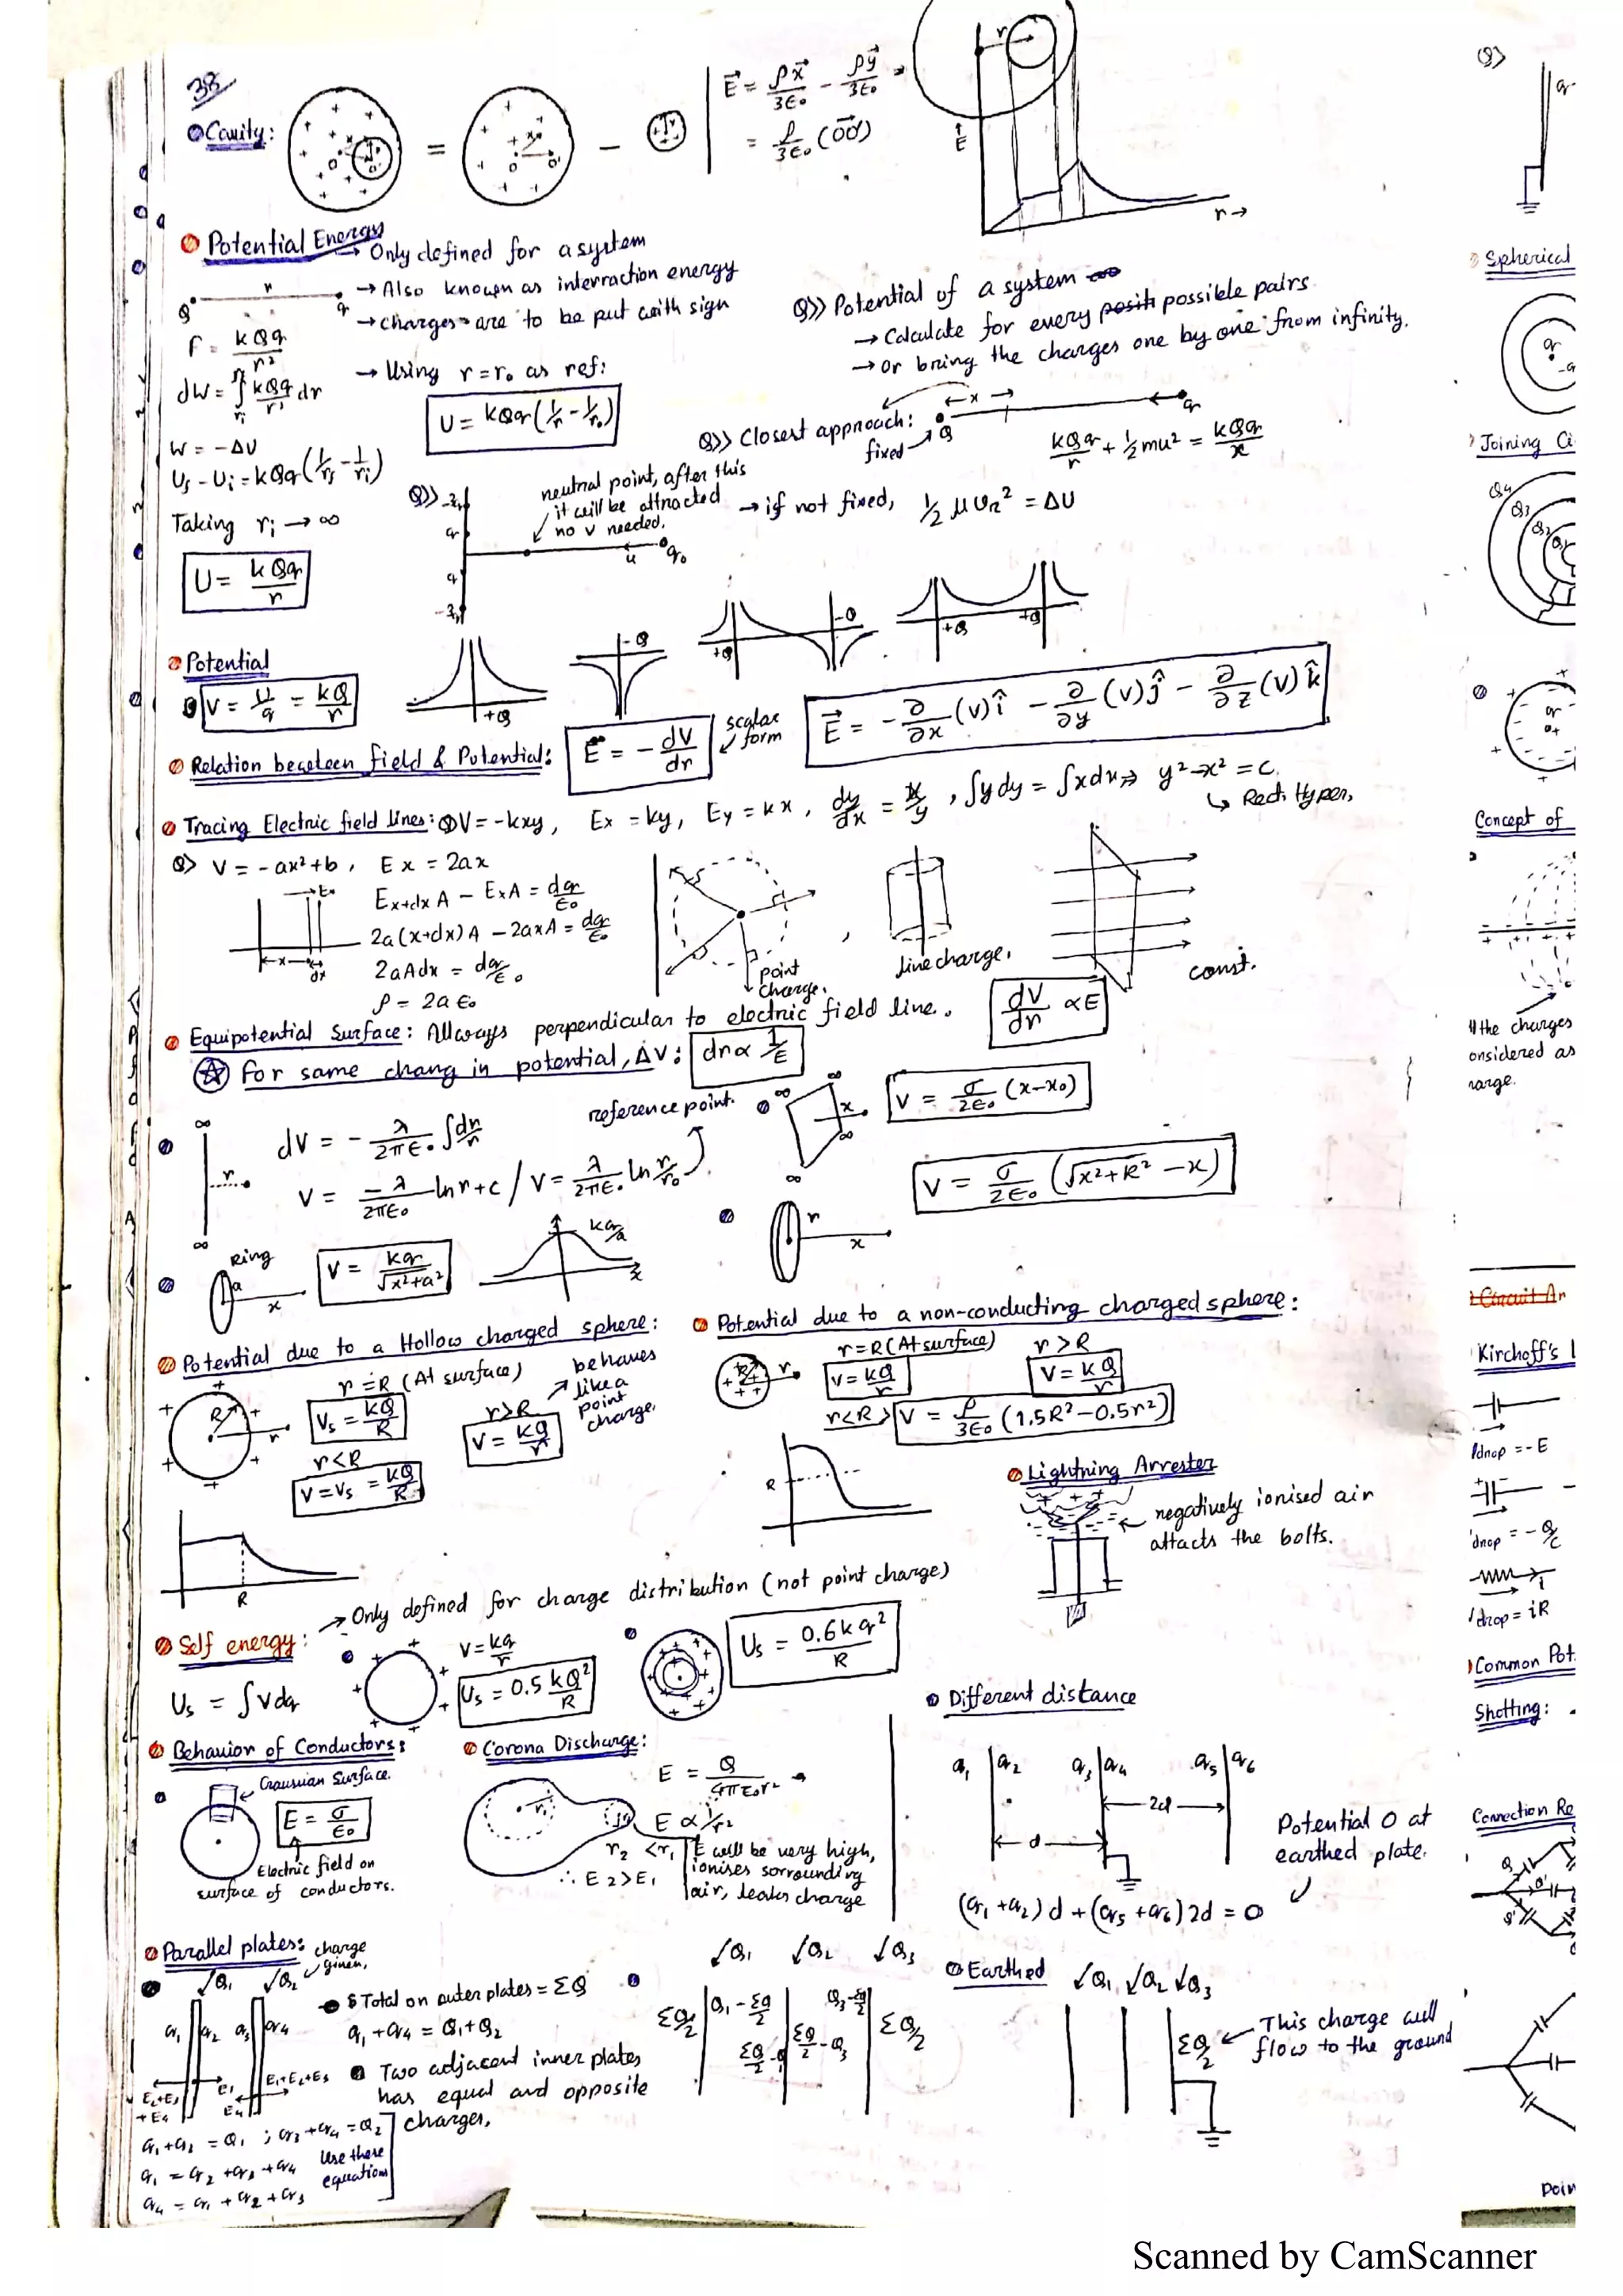 38
Cavity:
E⃗ = ρx⃗/3ε₀ - ρy⃗/3ε₀
= ρ/3ε₀ (OO')
E⃗
r→
Potential Energy
→ Only defined for a system
→ Also known as interraction energy
→ charges are to be put with sign
F = kQq/r²
dW = ∫ kQq/r² dr
W = -ΔU
Uf - Ui = kQq(1/rf - 1/ri)
Taking ri → ∞
U = kQq/r
→ Using r = r₀ as ref:
U = kQq(1/r - 1/r₀)
Q>> Potential of a system
→ Calculate for every possible pairs.
→ or bring the charges one by one from infinity.
Q>> Closest approach:
fixed → Q
kQq/r + ½mu² = kQq/x
→ if not fixed, ½ μ Ur² = ΔU
Q>>
neutral point, after this
it will be attracted
no v needed.
Potential
V = U/q = kQ/r
+Q
-Q
+Q -Q
+Q +Q
Relation between field & Potential:
E = -dV/dr
scalar
form
E⃗ = -∂/∂x (V)î - ∂/∂y (V)ĵ - ∂/∂z (V)k̂
Tracing Electric field lines: V = -kxy, Ex = ky, Ey = kx, dy/dx = x/y, ∫ydy = ∫xdx ⇒ y²-x² = c.
↳ Rect. Hyper.
Q> V = -ax²+b, Ex = 2ax
Ex+dx A - ExA = dq/ε₀
2a(x+dx)A - 2axA = dq/ε₀
2aAdx = dq/ε₀
ρ = 2aε₀
point
charge.
line charge.
const.
Equipotential Surface: Allways perpendicular to electric field line.
dV/dr ∝ E
For same chang in potential, ΔV: dr ∝ 1/E
dV = -λ/2πε₀ ∫dr/r
reference point.
V = -λ/2πε₀ lnr + c / V = λ/2πε₀ ln r/r₀
V = σ/2ε₀ (x-x₀)
V = σ/2ε₀ (√x²+R² - x)
Ring
V = kq/√x²+a²
kq/a
Potential due to a Hollow charged sphere:
r = R (At surface)
Vs = kQ/R
r>R
V = kQ/r
behaves
like a
point
charge.
r<R
V = Vs = kQ/R
R
Potential due to a non-conducting charged sphere:
r = R (At surface)
V = kQ/r
r > R
V = kQ/r
r<R
V = ρ/3ε₀ (1.5R² - 0.5r²)
R
Lightning Arrester
negatively ionised air
attacts the bolts.
Self energy:
→ Only defined for charge distribution (not point charge)
Us = ∫Vdq
V = kq/r
Us = 0.5 kQ²/R
Us = 0.6kq²/R
Behavior of Conductors:
Gaussian Surface.
E = σ/ε₀
Electric field on
surface of conductors.
Corona Discharge:
E = Q/4πε₀r²
E ∝ 1/r²
r₂ < r₁
∴ E₂>E₁
E will be very high,
ionises sorrounding
air, leaks charge
Different distance
q₁ q₂ q₃ q₄ q₅ q₆
d
2d
Potential 0 at
earthed plate.
(q₁+q₂)d + (q₅+q₆)2d = 0
Parallel plates:
charge
given.
Q₁ Q₂
q₁ q₂ q₃ q₄
Total on outer plates = ΣQ
q₁+q₄ = Q₁+Q₂
Two adjacent inner plates
has equal and opposite
charges.
q₁+q₂ = Q₁ ; q₃+q₄ = Q₂
q₁ = q₂+q₃+q₄
q₄ = q₁+q₂+q₃
Use these
equations
Q₁ Q₂ Q₃
ΣQ/2
Q₁ - ΣQ/2
ΣQ/2 - Q₃
ΣQ/2
Earthed
Q₁ Q₂ Q₃
ΣQ/2
This charge will
flow to the ground
Q>
Spherical
Joining Ci
Q₄
Q₃
Q₂
Q₁
Concept of
the charges
onsidered as
Kirchoff's
drop = -E
drop = -Q/C
drop = iR
Common Pot.
Shotting:
Connection Re
Poin
Scanned by CamScanner